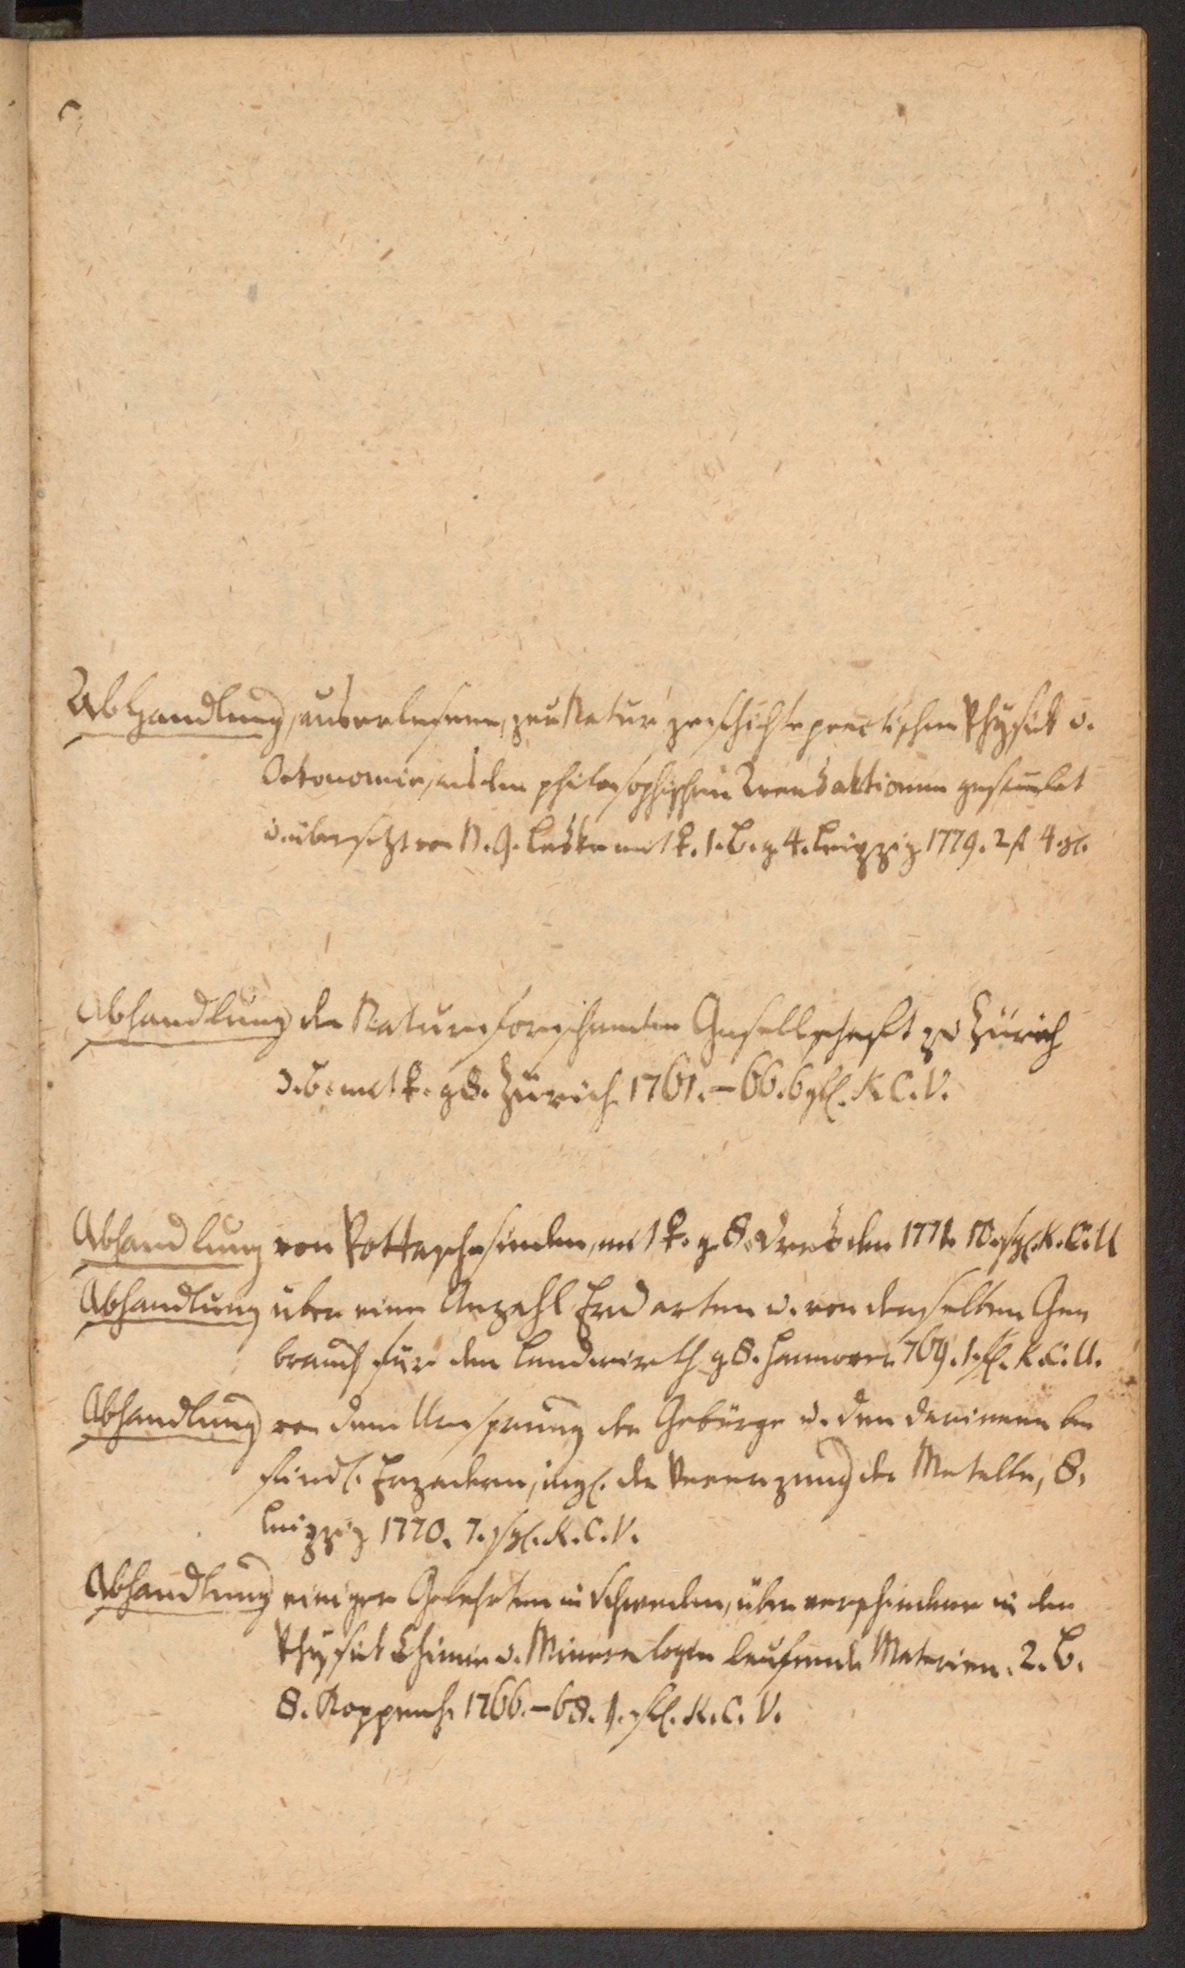 Abhandlung, auserlesene, zur Natur geschichte practischen Physick u.
Oekonomie, aus den philosophischen Transaktionen gesam̅let
u. übersetzt von N. G. Leske mit K. 1. B. g 4. Leipzig 1779. 2 fl 4 gr.
Abhandlung der Naturforschenden Gesellschaft zu Zürich
3. B. mit K. g 8. Zürich 1761.–66. 6 K. C. V.
Abhandlung von Pottaschesieden, mit K. g 8. Dresden 1771. 10. K. C. V
Abhandlung über eine Anzahl Erdarten u. von derselben Ge
brauch für den Landwirth g 8. Hannover 769. 1. K. C. V.
Abhandlung von dem Ursprung der Gebürge u. den darinnen be
findl. Erzadern, ingl. der Vererzung der Metalle, 8.
Leipzig 1770. 7. K. C. V.
Abhandlung einiger Gelehrten in Schweden, über verschiedene in der
Physick Chimie u. Mineralogie laufende Materien. 2. B.
8. Koppenh. 1766.–68. 1. K. C. V.